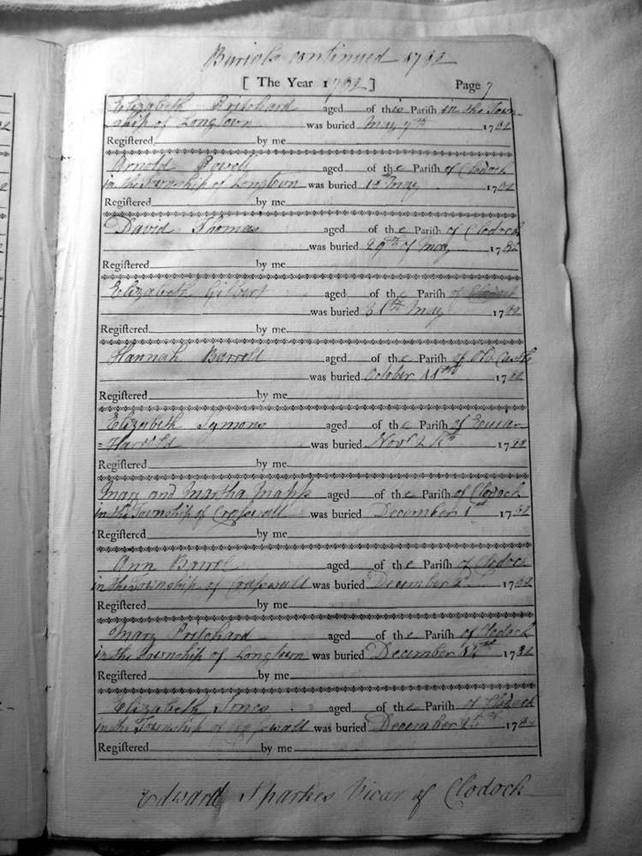 Burials continued 1792
[ The Year 1792 ] Page 7
Elizabeth Prichard aged of the Parish in the Town-
ship of Longtown was buried May 7th 1792
Registered by me
Arnold Powell aged of the Parish of Clodock
in the Township of Longtown was buried May 1792
Registered by me
David Thomas aged of the Parish of Clodock
was buried 29th of May 1792
Registered by me
Elizabeth Gilbert aged of the Parish of Clodock
was buried May 1792
Registered by me
Hannah Barrell aged of the Parish of Old Castle
was buried October 1792
Registered by me
Elizabeth Symons aged of the Parish of Ewias
Harold was buried Novr 1792
Registered by me
Mary and Martha aged of the Parish of Clodock
in the Township of Craswall was buried December 1st 1792
Registered by me
Ann aged of the Parish of Clodock
in the Township of Craswall was buried December 1792
Registered by me
Mary Prichard aged of the Parish of Clodock
in the Township of Longtown was buried December 1792
Registered by me
Elizabeth Jones aged of the Parish of Clodock
in the Township of Craswall was buried December 1792
Registered by me
Edward Sparkes Vicar of Clodock